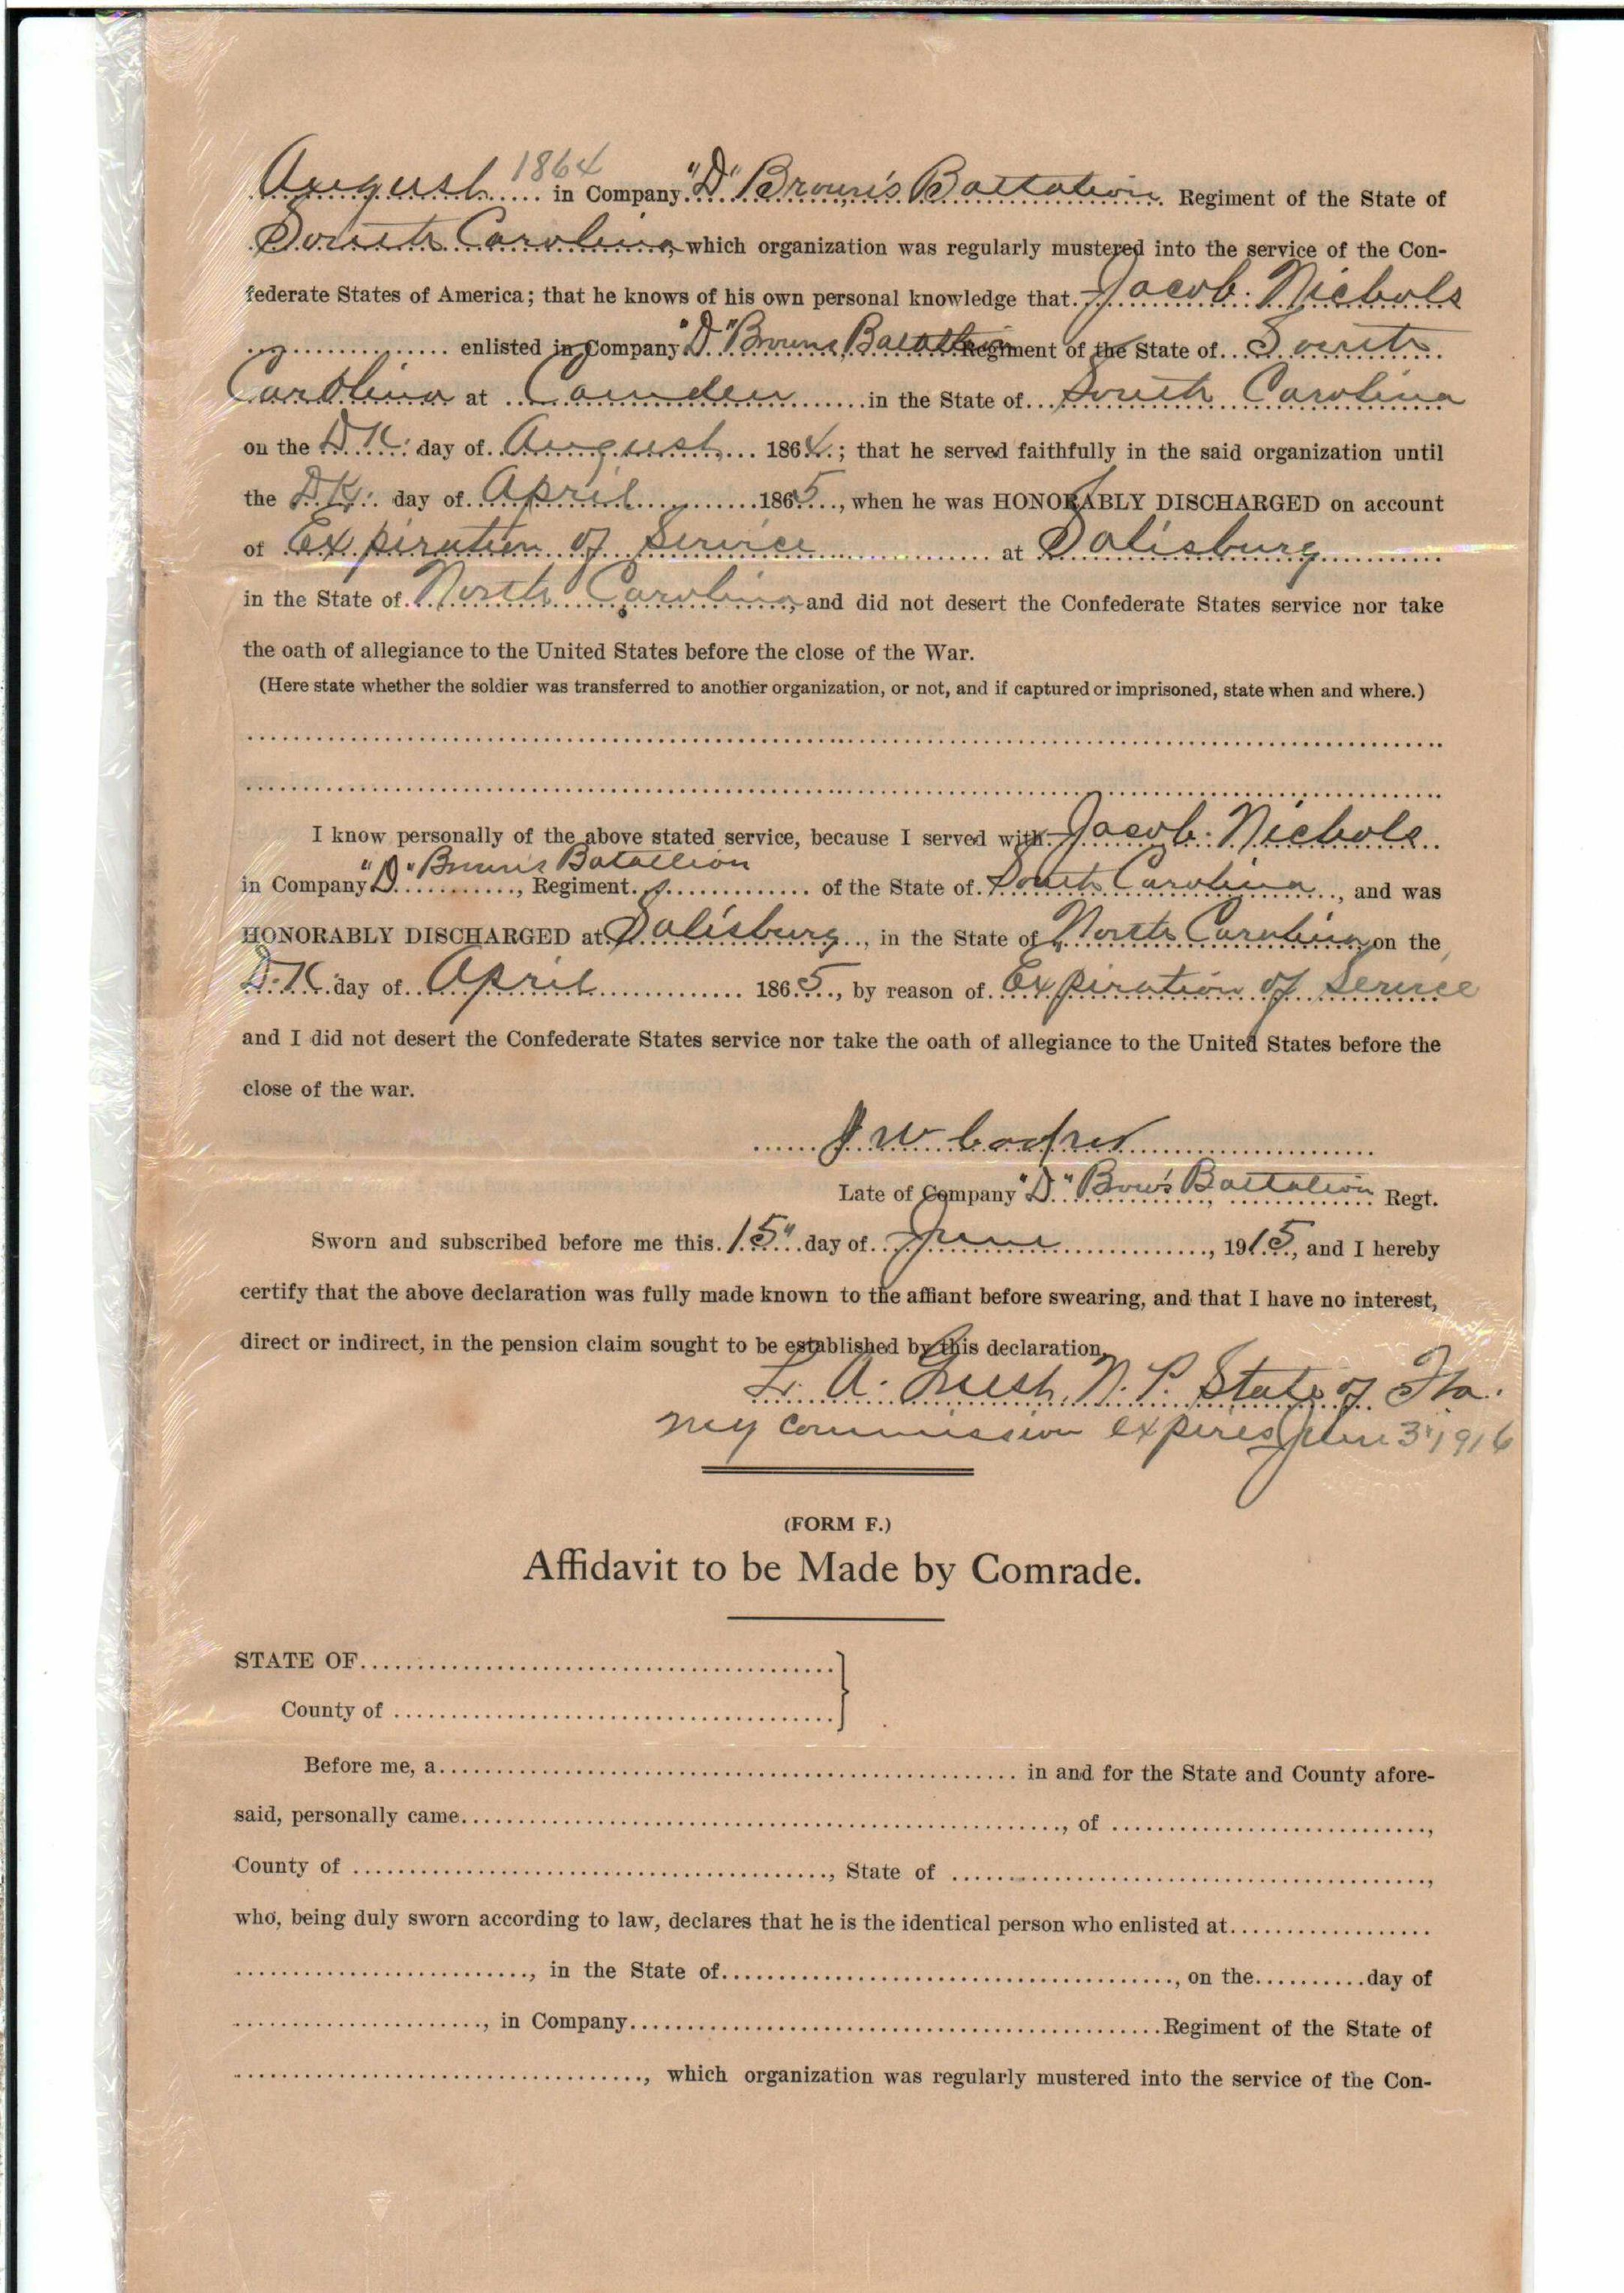 August 1864 in Company "D" Brown's Battalion Regiment of the State of
South Carolina, which organization was regularly mustered into the service of the Con-
federate States of America; that he knows of his own personal knowledge that Jacob Nichols
enlisted in Company "D" Browns Batallion Regiment of the State of South
Carolina at Camden in the State of South Carolina
on the D.K. day of August 1864; that he served faithfully in the said organization until
the D.K. day of April 1865, when he was HONORABLY DISCHARGED on account
of Expiration of Service at Salisburg
in the State of North Carolina, and did not desert the Confederate States service nor take
the oath of allegiance to the United States before the close of the War.
(Here state whether the soldier was transferred to another organization, or not, and if captured or imprisoned, state when and where.)
I know personally of the above stated service, because I served with Jacob Nichols
in Company "D" Brown's Batallion, Regiment of the State of South Carolina, and was
HONORABLY DISCHARGED at Salisburg, in the State of North Carolina on the
D.K. day of April 1865, by reason of Expiration of Service
and I did not desert the Confederate States service nor take the oath of allegiance to the United States before the
close of the war.
J W
Late of Company "D" Brow's Battalion Regt.
Sworn and subscribed before me this 15" day of June, 1915, and I hereby
certify that the above declaration was fully made known to the affiant before swearing, and that I have no interest,
direct or indirect, in the pension claim sought to be established by this declaration.
A. N. P. State of Fla.
my commission expires 3" 1916
(FORM F.)
Affidavit to be Made by Comrade.
STATE OF
County of
Before me, a in and for the State and County afore-
said, personally came, of ,
County of , State of ,
who, being duly sworn according to law, declares that he is the identical person who enlisted at
, in the State of, on the day of
, in Company Regiment of the State of
, which organization was regularly mustered into the service of the Con-